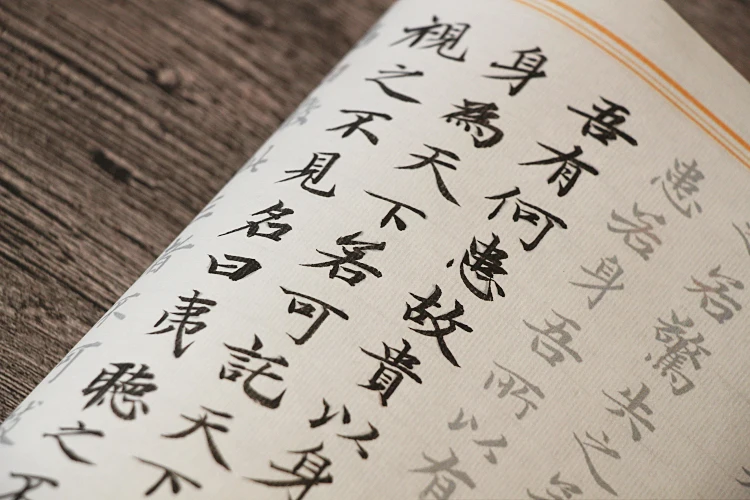 若驚失之若
患若身吾所以有
吾有何患故貴以身
身為天下若可託天下
視之不見名曰夷聽之不
者不可